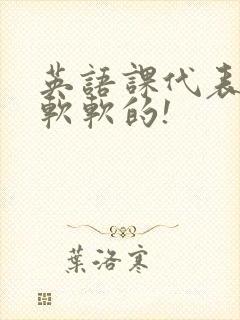 英語課代表
軟軟的!
葉洛寒